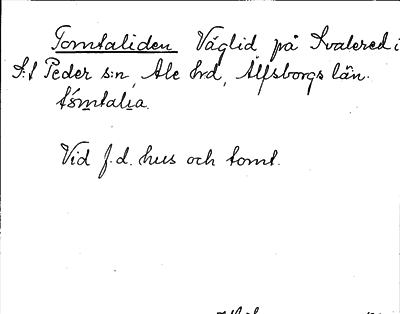 Tomtaliden Väglid på Kvalered i
S:t Peder s:n, Ale hrd, Älfsborgs län.
tómtalia.
Vid f.d. hus och tomt.